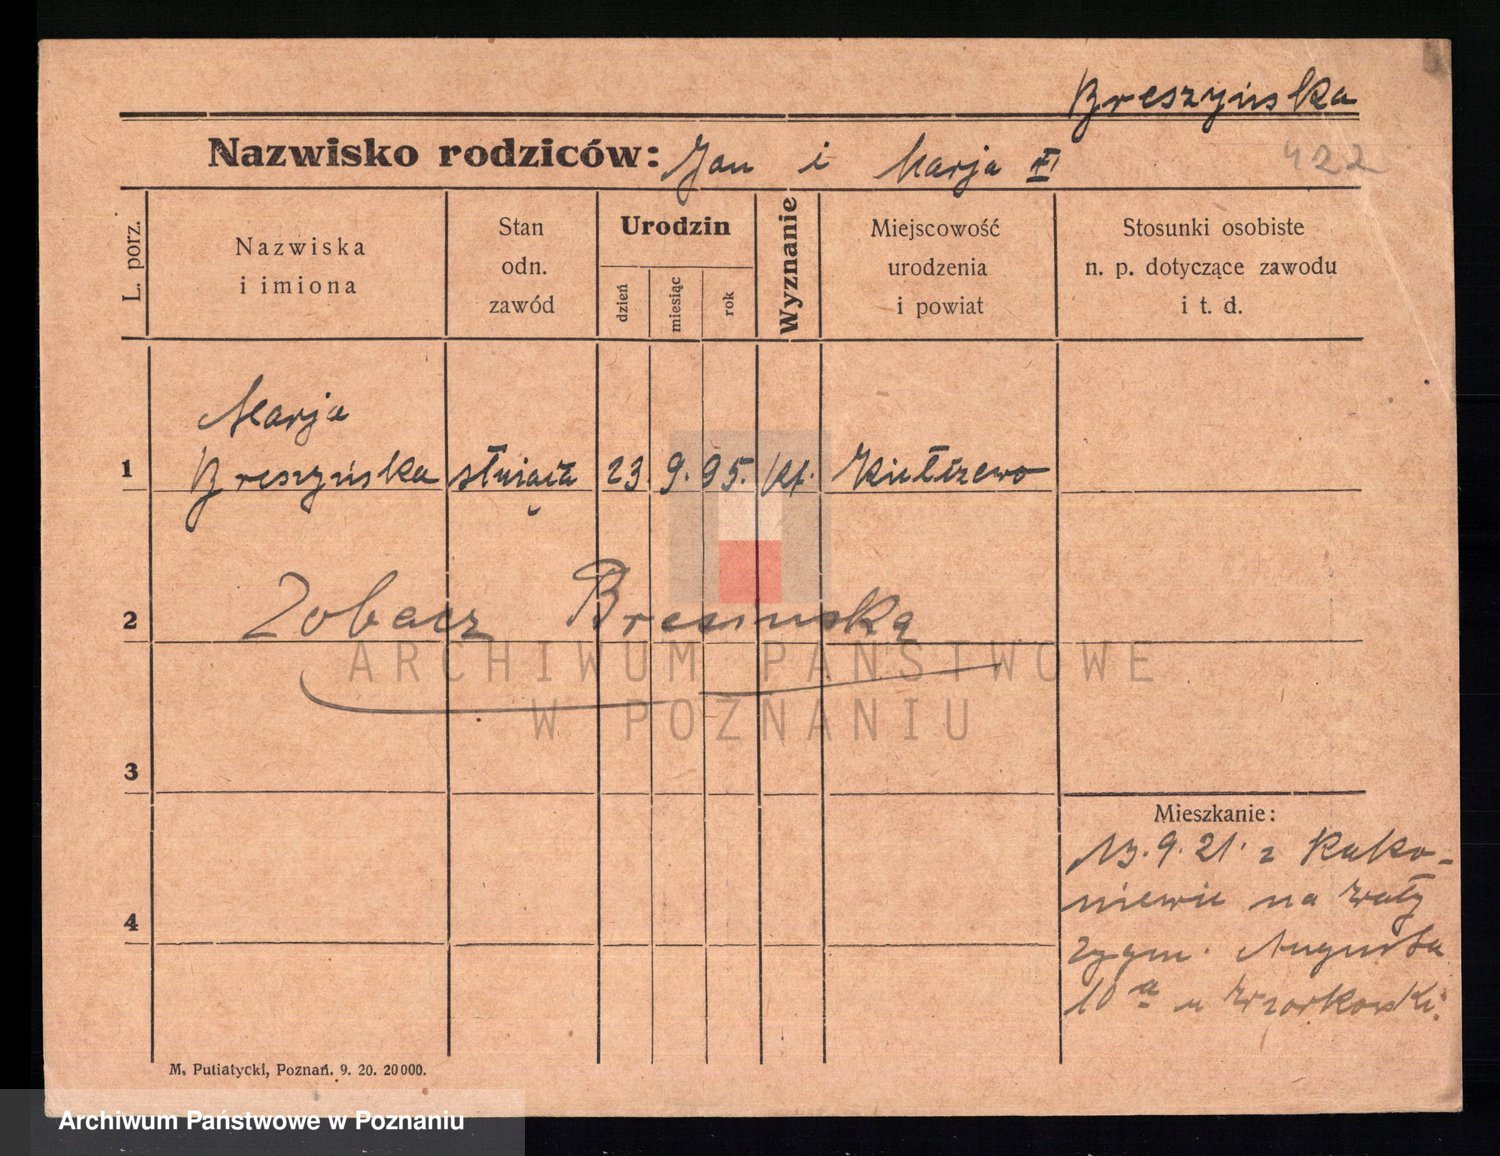 Breszyńska
Nazwisko rodziców: Jan i Marja
422
L. porz.
Nazwiska
i imiona
Stan
odn.
zawód
Urodzin
dzień
miesiąc
rok
Wyznanie
Miejscowość
urodzenia
i powiat
Stosunki osobiste
n. p. dotyczące zawodu
i t. d.
Marja
1 Breszyńska służąca 23. 9. 95. kt. Kiełczewo
2 Zobacz Bresinską
ARCHIWUM PAŃSTWOWE
W POZNANIU
3
Mieszkanie:
13.9.21. z Rako-
niewic na Wały
4
Zygm. Augusta
10a u
M. Putiatycki, Poznań. 9. 20. 20000.
Archiwum Państwowe w Poznaniu